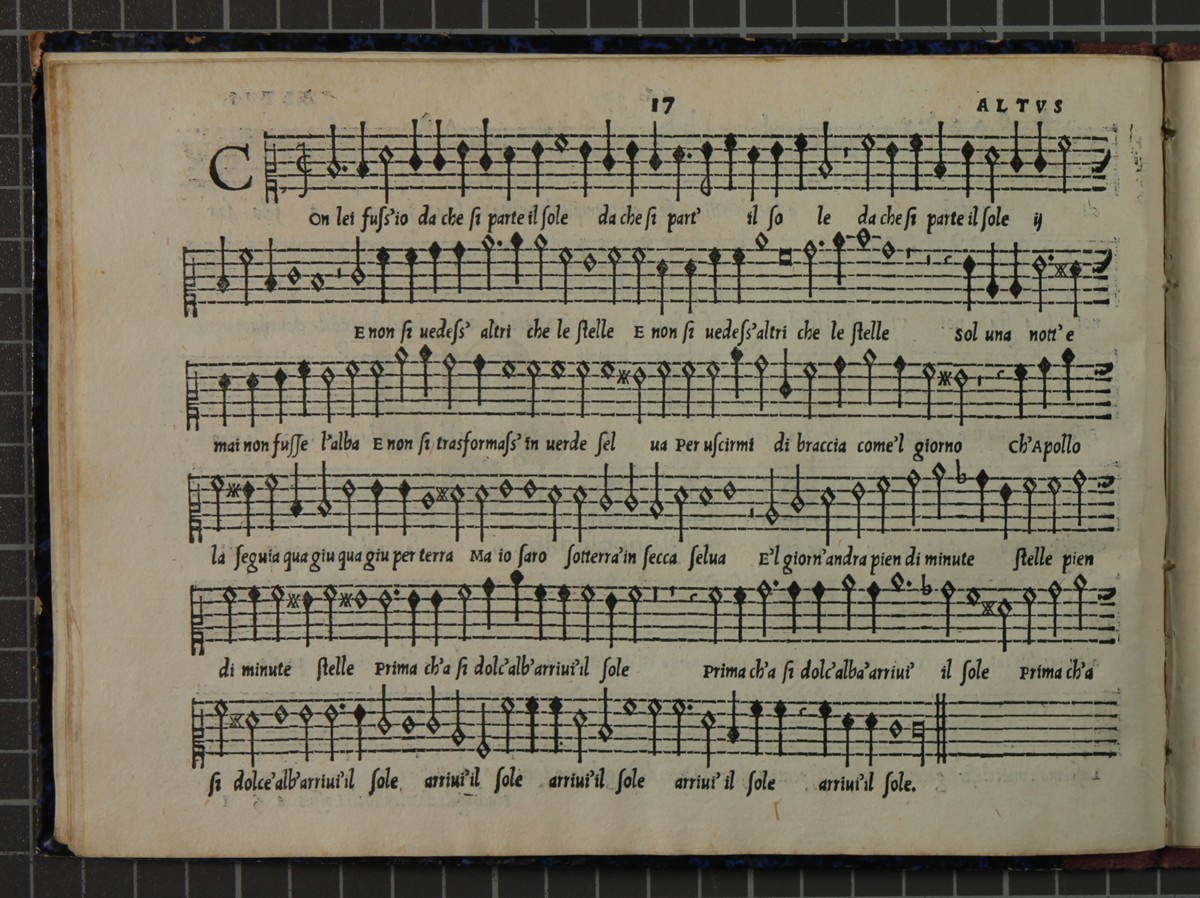 17 ALTVS
COn lei fuſs'io da che ſi parte il ſole da che ſi part' il ſo le da che ſi parte il ſole ij
E non ſi uedeſs' altri che le ſtelle E non ſi uedeſs'altri che le ſtelle Sol una nott' e
mai non fuſſe l'alba E non ſi trasformaſs' in uerde ſel ua Per uſcirmi di braccia come'l giorno Ch'Apollo
la ſeguia qua giu qua giu per terra Ma io ſaro ſotterra'in ſecca ſelua E'l giorn'andra pien di minute ſtelle pien
di minute ſtelle Prima ch'a ſi dolc'alb'arriui'il ſole Prima ch'a ſi dolc'alba'arriui' il ſole Prima ch'a
ſi dolce'alb'arriui'il ſole arriui'il ſole arriui'il ſole arriui' il ſole arriui'il ſole.